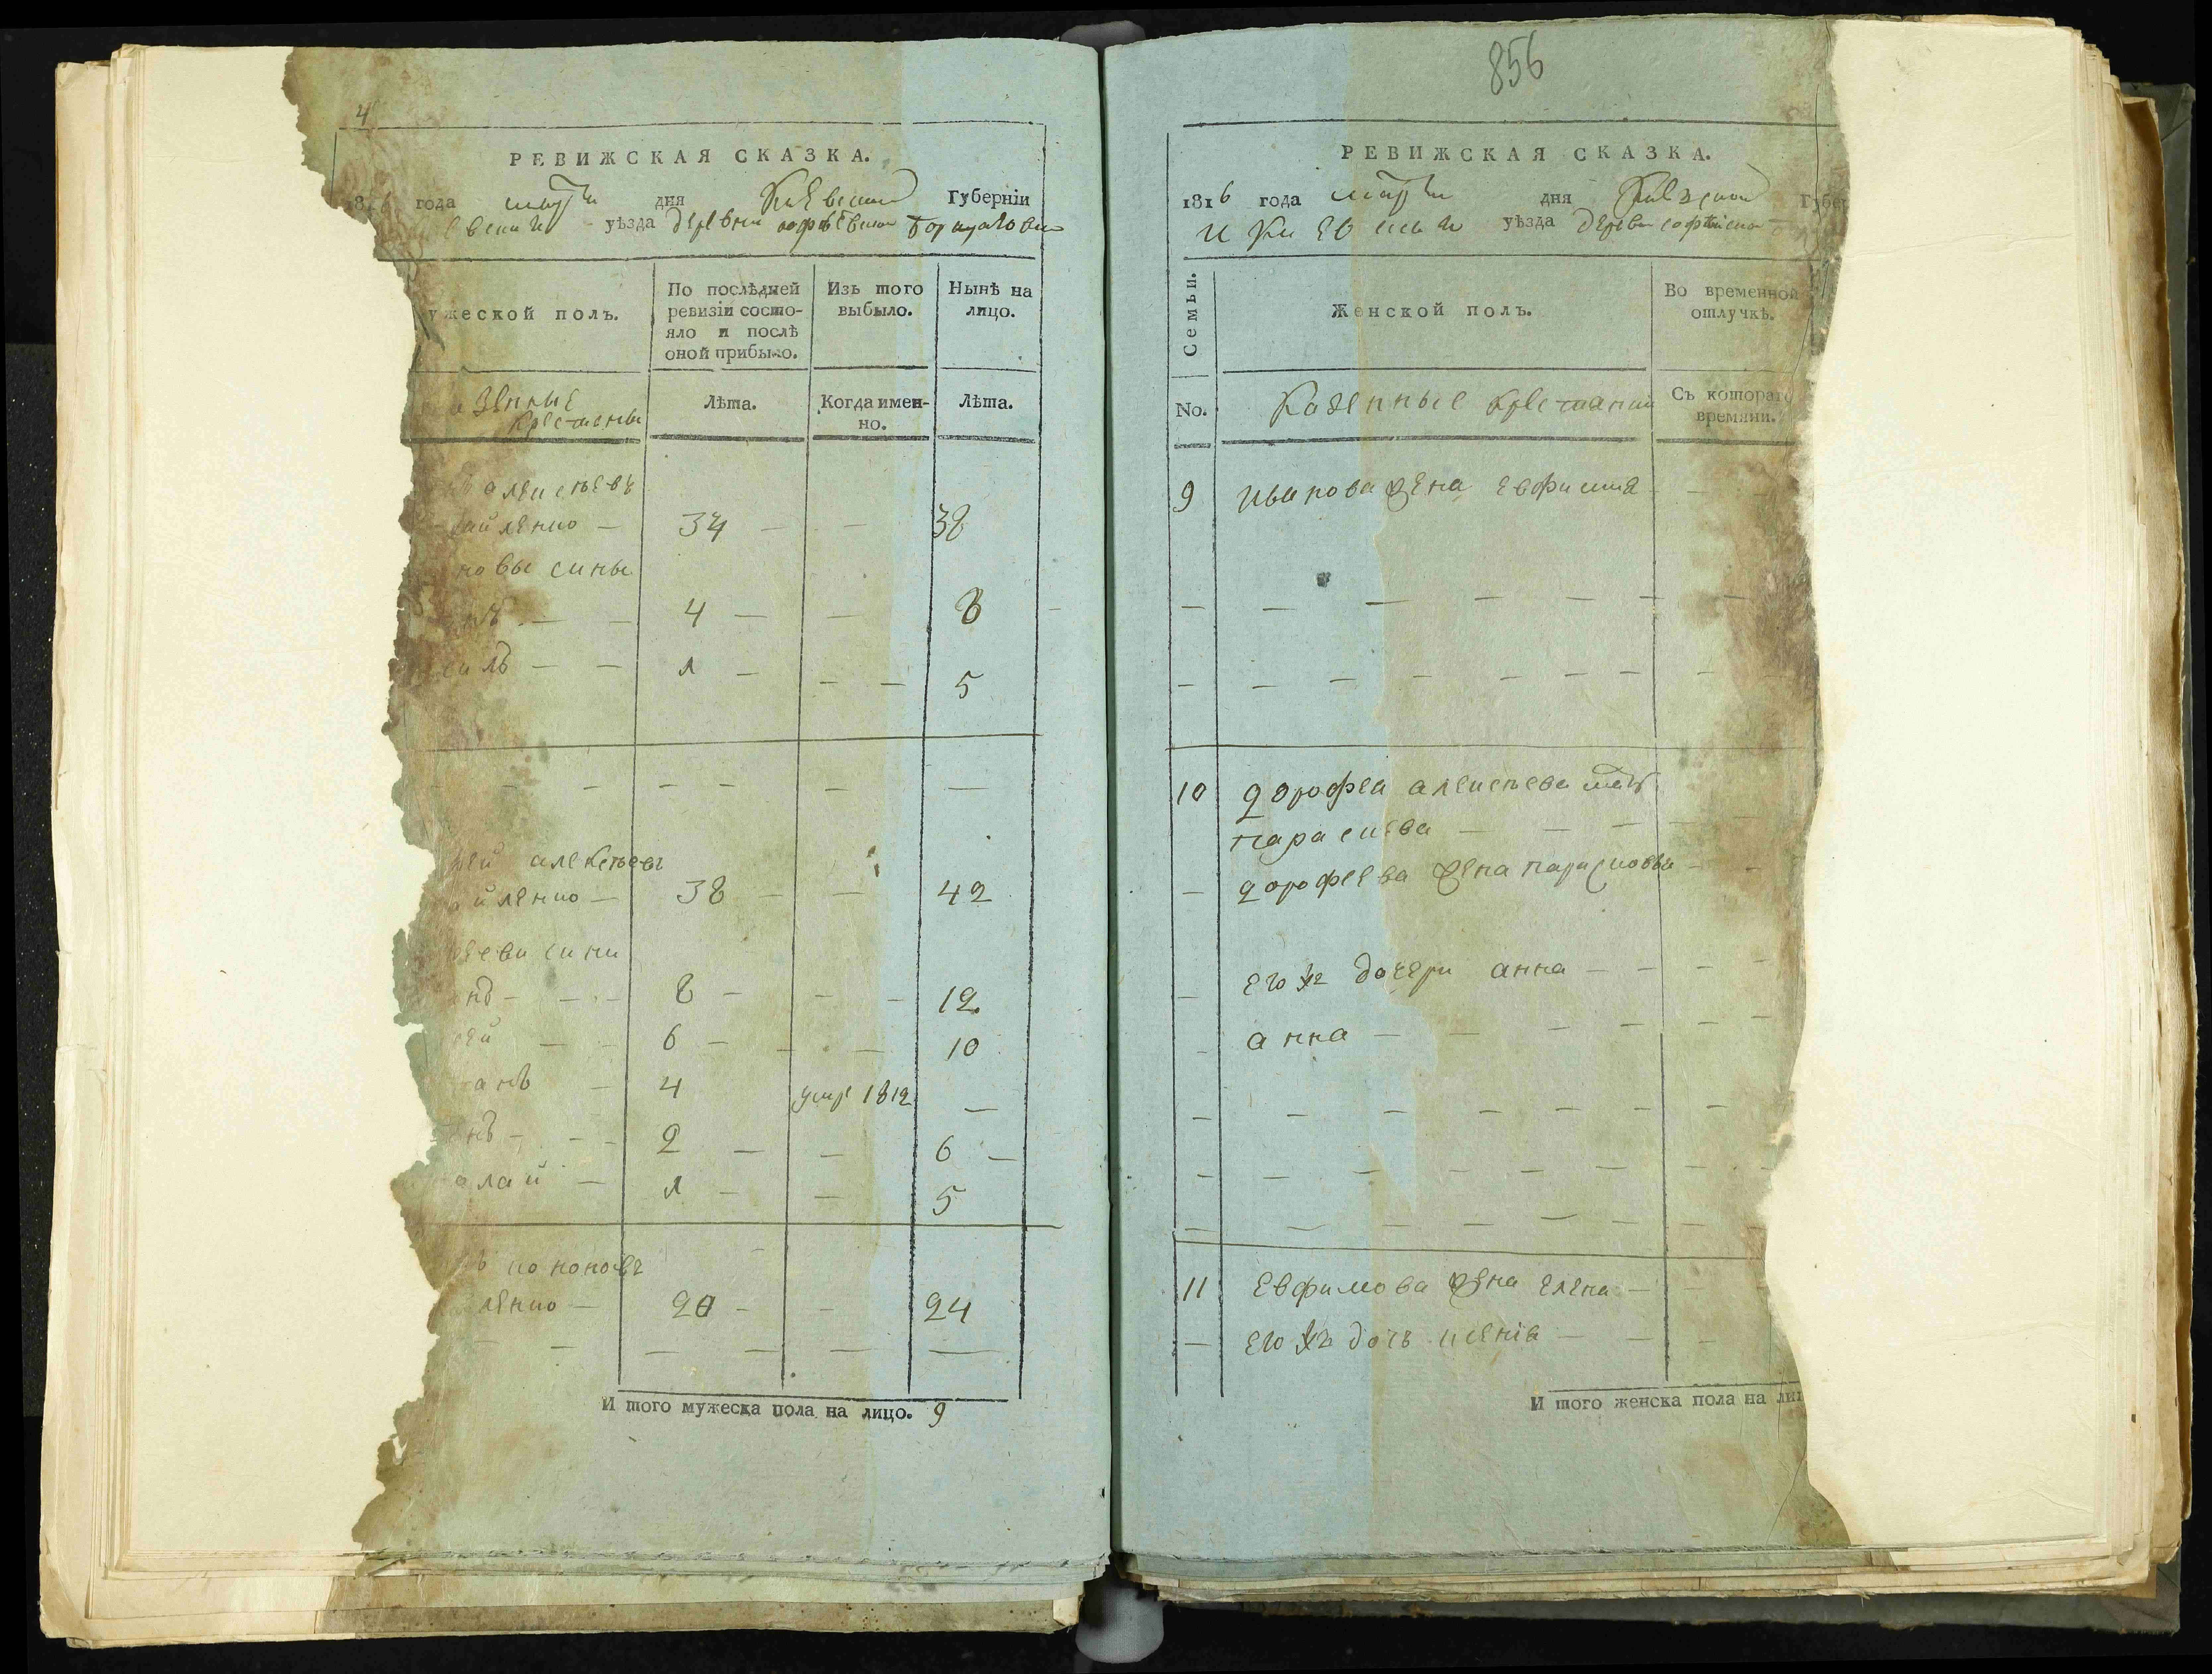 4
РЕВИЖСКАЯ СКАЗКА.
1816 года марта дня Киевской Губерніи
уѣзда деревни софіевской Борщаговки
ужеской полъ.
По послѣдней
ревизіи состо-
яло и послѣ
оной прибыло.
Изъ того
выбыло.
Нынѣ на
лицо.
азенные
крестяны
Лѣта.
Когда имен-
но.
Лѣта.
алексѣевъ
айленко — 34 — — 38
новы сины
нъ — — 4 — — 8
силъ — — 1 — — — 5
— — — — — — —
фей алексѣевъ
йленко — 38 — — 42
еви сини
нъ — — — 8 — — — 12.
сей — — 6 — — — 10
анъ — 4 умре 1812 —
нъ — — — 2 — — 6 —
олай — 1 — — 5
кононовъ
ленко — 20 — — 24
— — — — — —
И того мужеска пола на лицо. 9
856
РЕВИЖСКАЯ СКАЗКА.
1816 года марта дня Киевской Губе
и Киевской уѣзда деревни софѣиской
Семьи.
Женской полъ.
Во временной
отлучкѣ.
No.
Казенные крестяни
Съ котораго
времяни.
9 Иванова жена Евфимия — —
— — — — — — —
— — — — — — — — —
10 Дорофея алексѣева мать
параскева — — — — —
— дорофеева жена парасковья — —
— его жъ дочери анна — — — —
— анна — — — — — —
— — — — — — —
— — — — — — — —
— — — — — — — —
11 Евфимова жена елена — —
— его жъ дочь ксенія — — —
И того женска пола на лиц